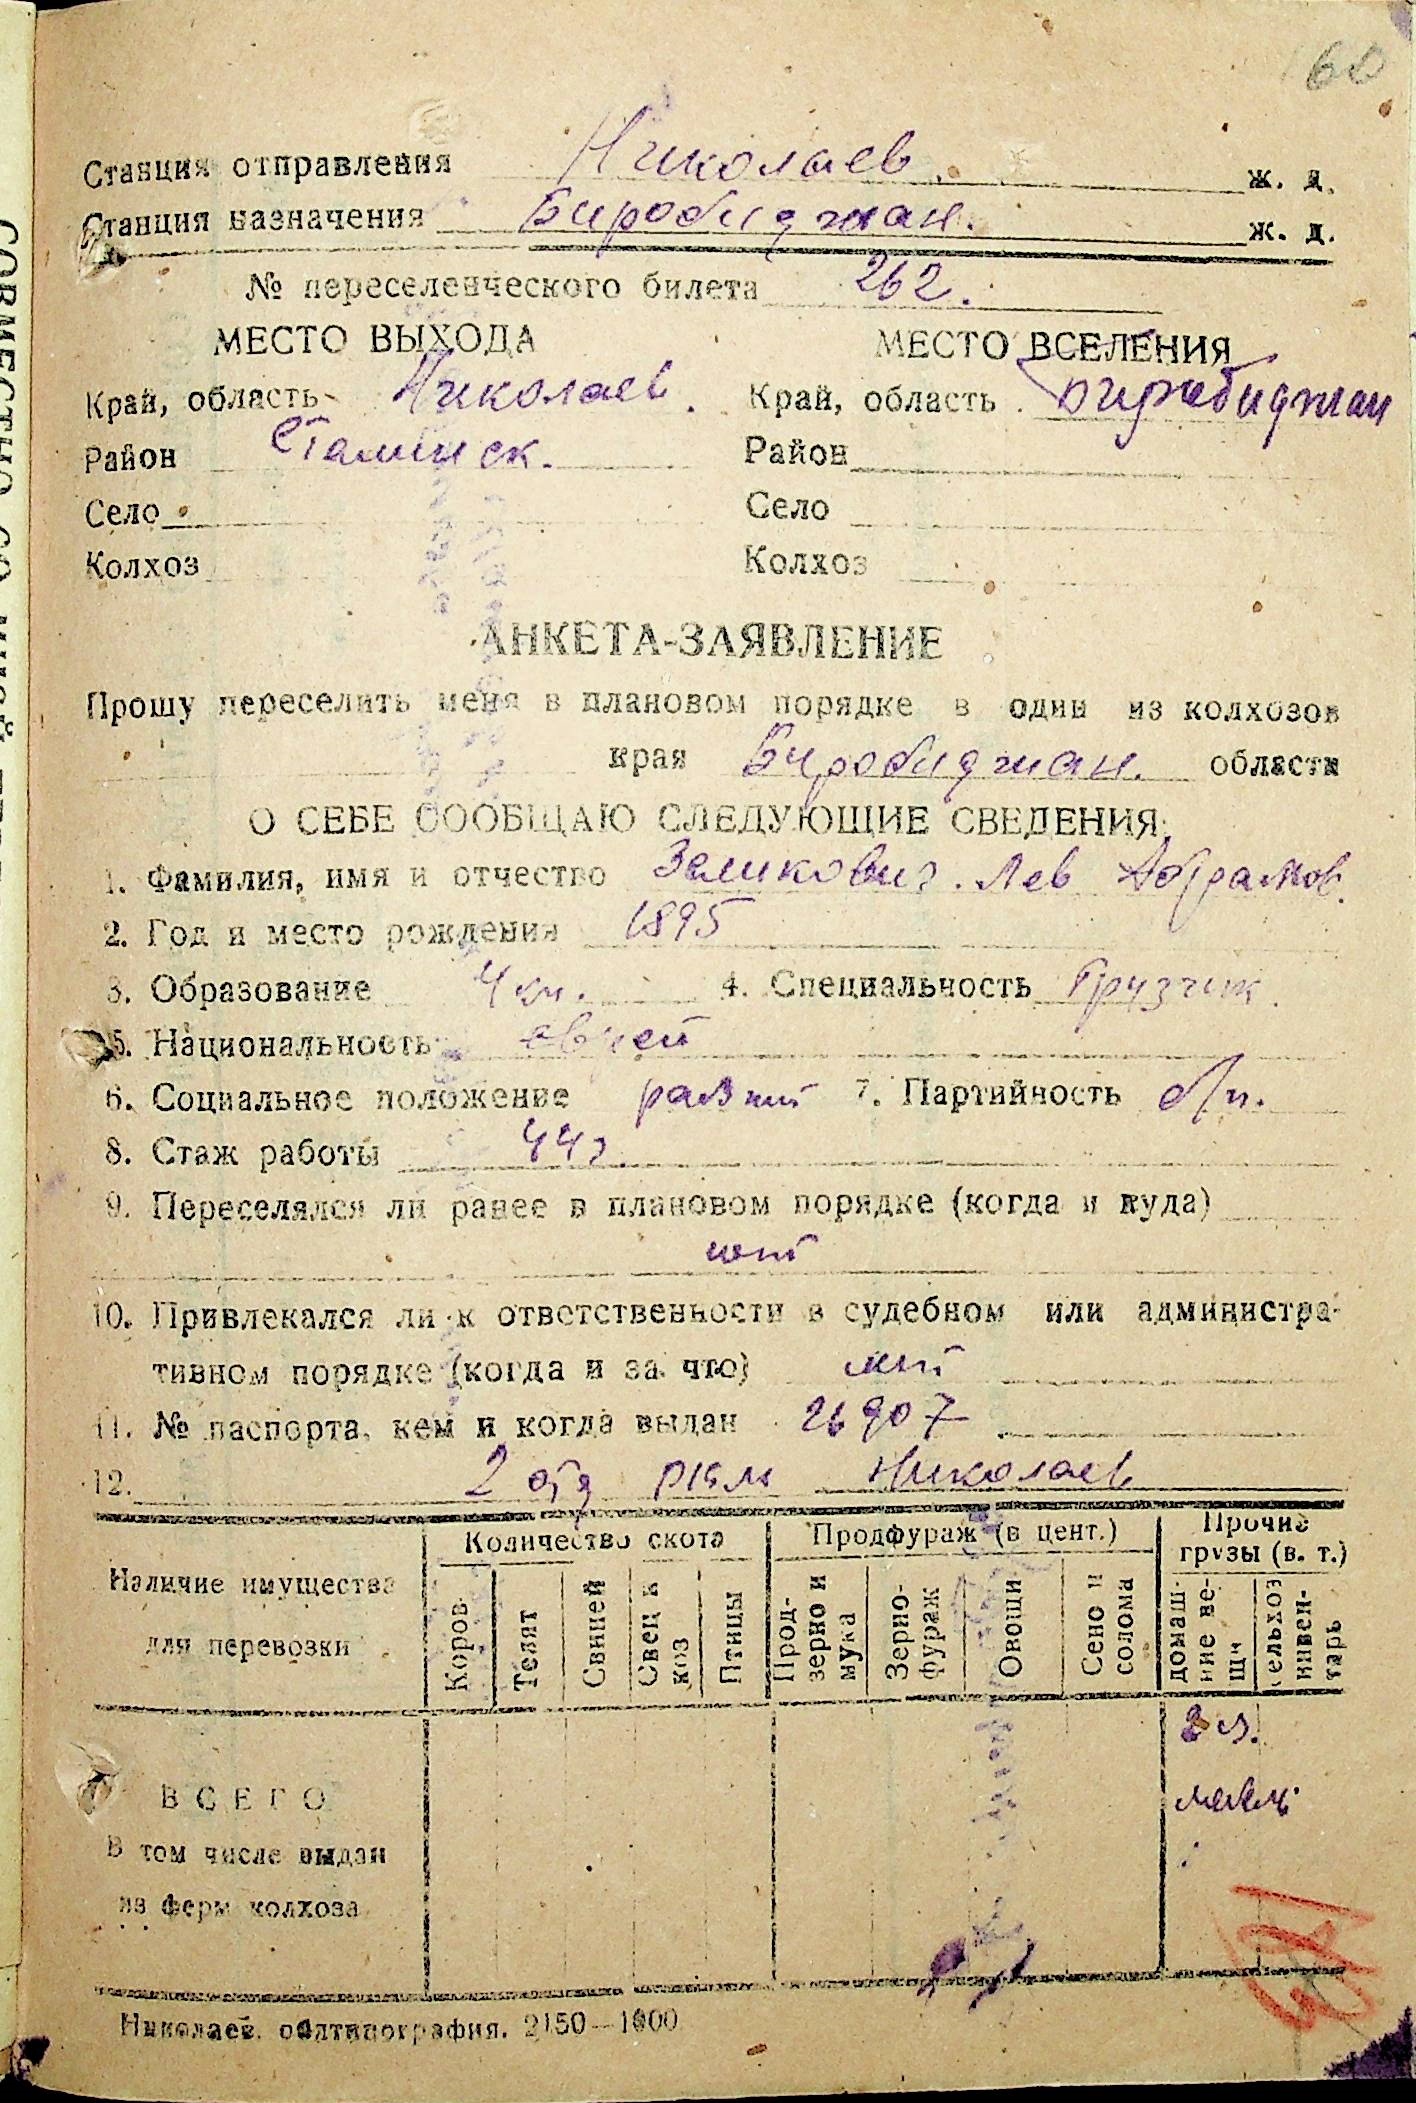 60
Станция отправления Николаев. ж. д.
Станция назначения Биробиджан. ж. д.
№ переселенческого билета 262.
МЕСТО ВЫХОДА МЕСТО ВСЕЛЕНИЯ
Край, область Николаев. Край, область Биробиджан
Район Сталинск. Район
Село Село
Колхоз Колхоз
АНКЕТА-ЗАЯВЛЕНИЕ
Прошу переселить меня в плановом порядке в один из колхозов
края Биробиджан. области
О СЕБЕ СООБЩАЮ СЛЕДУЮЩИЕ СВЕДЕНИЯ:
1. Фамилия, имя и отчество Зеликович. Лев Абрамов.
2. Год и место рождения 1895
3. Образование 4 кл. 4. Специальность Грузчик.
5. Национальность еврей
6. Социальное положение 7. Партийность б/п.
8. Стаж работы 44г.
9. Переселялся ли ранее в плановом порядке (когда и куда)
нет
10. Привлекался ли к ответственности в судебном или администра-
тивном порядке (когда и за что) нет
11. № паспорта, кем и когда выдан 26907
12. 2 отд РКМ Николаев
Наличие имущества для перевозки Количество скота Продфураж (в цент.) Прочие грузы (в. т.)
Коров Телят Свиней Свец и коз Птицы Прод-зерно и мука Зерно-фураж Овощи Сено и солома домаш-ние ве-щи сельхоз инвен-тарь
ВСЕГО
В том числе выдан
из ферм колхоза
Николаев. облтипография. 2150—1000